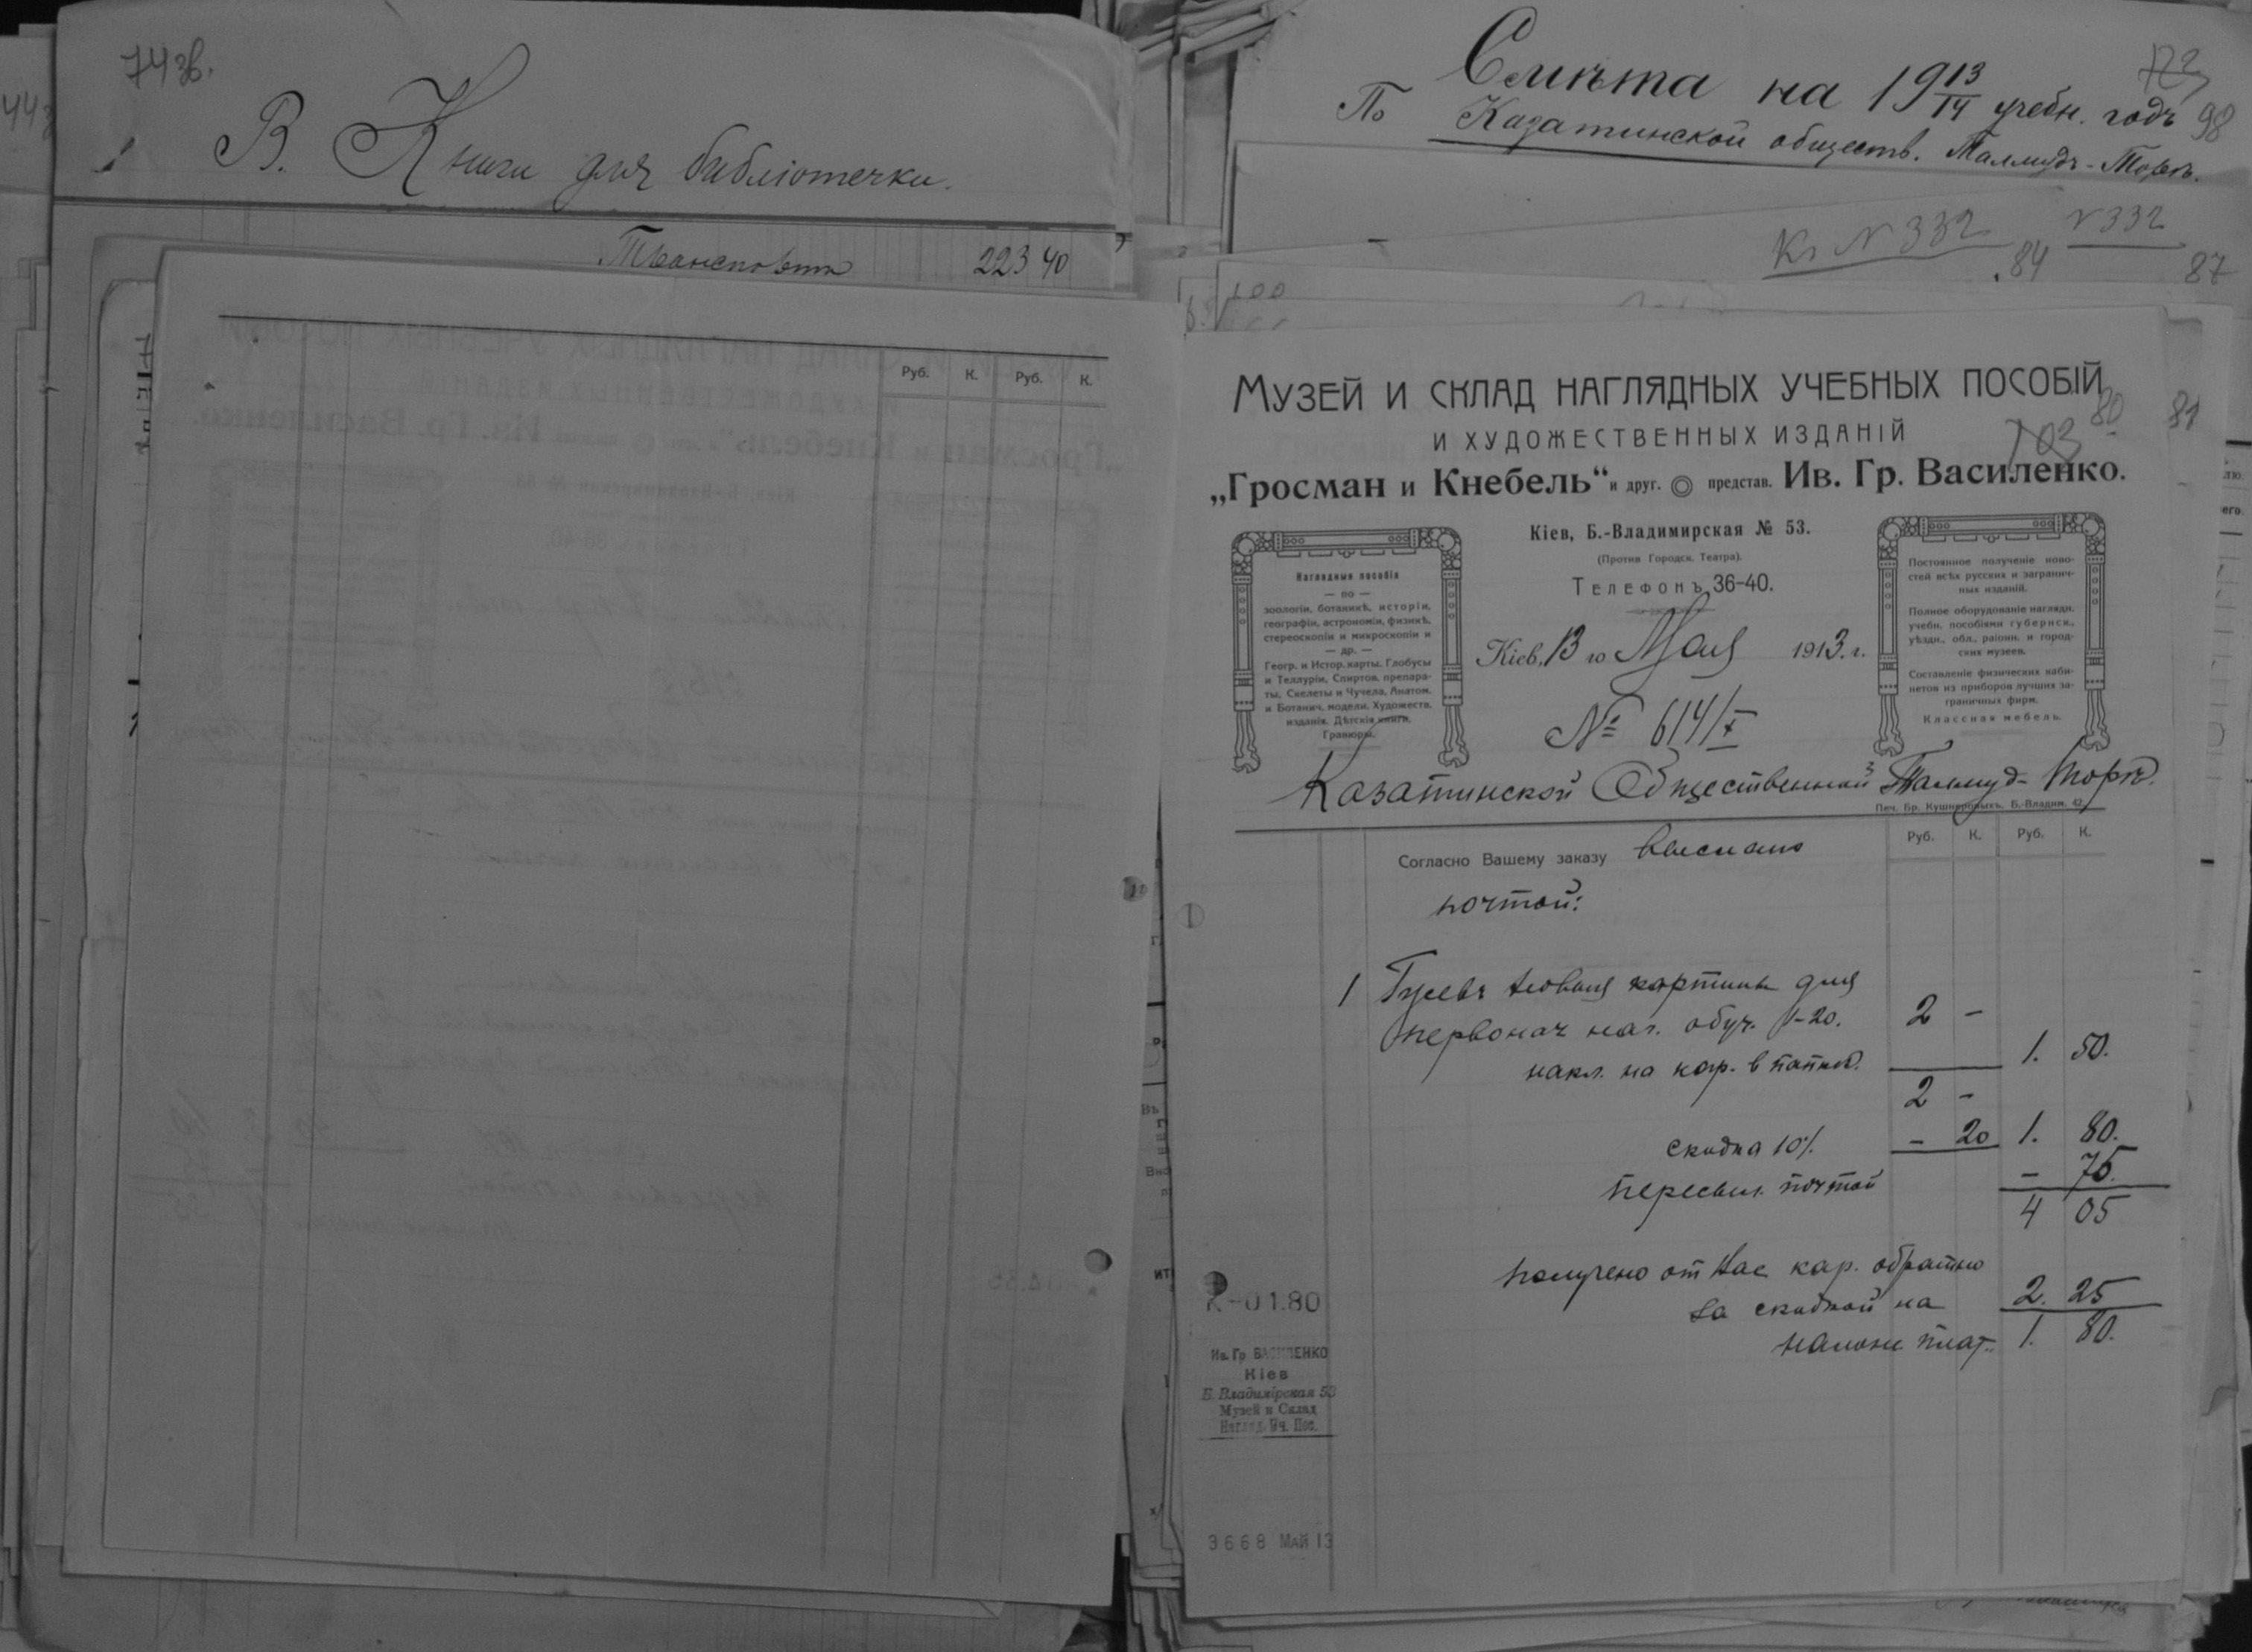 74 зв.
В. Книги для библіотечки.
Транспортъ 223 40
Руб. К. Руб. К.
Смѣта на 1913/14 учебн. годъ
98
По Казатинской обществ. Талмудъ-Торѣ.
№ 332
№ 332
84
87
МУЗЕЙ И СКЛАД НАГЛЯДНЫХ УЧЕБНЫХ ПОСОБІЙ
80
81
И ХУДОЖЕСТВЕННЫХ ИЗДАНІЙ
103
„Гросман и Кнебель“ и друг. представ. Ив. Гр. Василенко.
Кіев, Б.-Владимирская № 53.
(Против Городск. Театра).
ТЕЛЕФОНЪ 36-40.
Наглядныя пособія
— по —
зоологіи, ботаникѣ, исторіи,
географіи, астрономіи, физикѣ,
стереоскопіи и микроскопіи и
— др. —
Геогр. и Истор. карты. Глобусы
и Теллуріи, Спиртов. препара-
ты, Скелеты и Чучела, Анатом.
и Ботанич. модели. Художеств.
изданія. Дѣтскія книги.
Гравюры.
Постоянное полученіе ново-
стей всѣх русских и загранич-
ных изданій.
Полное оборудованіе наглядн.
учебн. пособіями губернск.,
уѣздн., обл., раіонн. и город-
ских музеев.
Составленіе физических каби-
нетов из приборов лучших за-
граничных фирм.
Классная мебель.
Кіев, 13 го Мая 1913 г.
№ 614/X
Казатинской Общественной Талмуд-Торѣ.
Печ. Бр. Кушнеровыхъ, Б.-Владим. 42.
Руб. К. Руб. К.
Согласно Вашему заказу выслано
почтой:
1 Гусевъ новыя картины для
первонач наг. обуч. 1-20. 2 -
накл. на кар. в папкѣ. 1. 50.
2 -
скидка 10% - 20 1. 80.
пересыл. почтой - 75.
4 05
получено от Вас кар. обратно
за скидкой на 2. 25
налож плат. 1. 80.
К-01.80
Ив. Гр ВАСИЛЕНКО
Кіев
Б. Владимірская 53
Музей и Склад
Нагляд. Уч. Пос.
3668 МАЙ 13